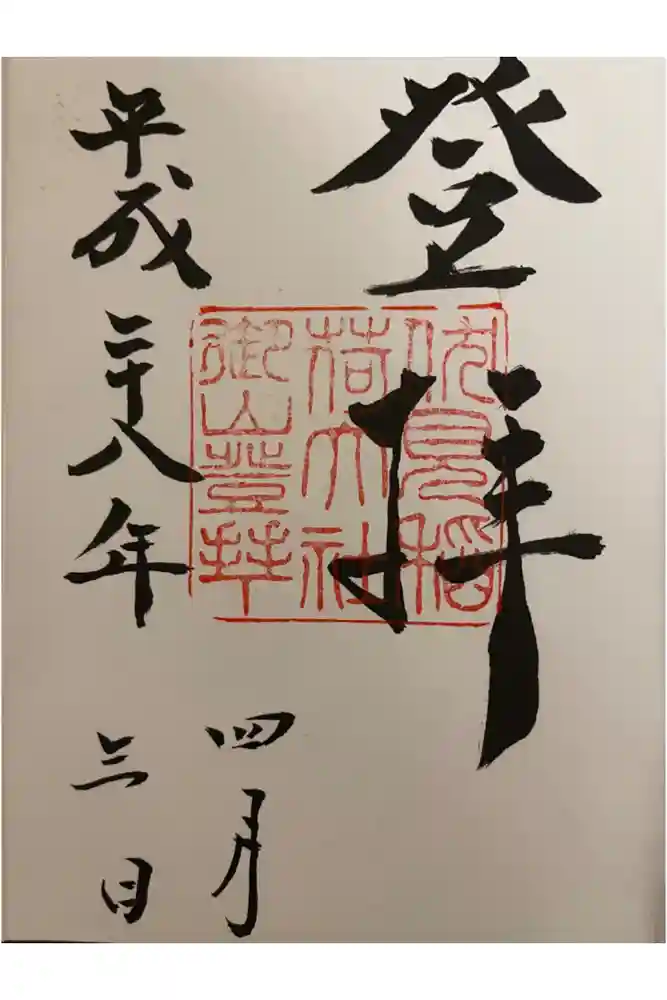 登拝
伏見稲
荷大社
御山登拝
平成二十八年
四月
三日